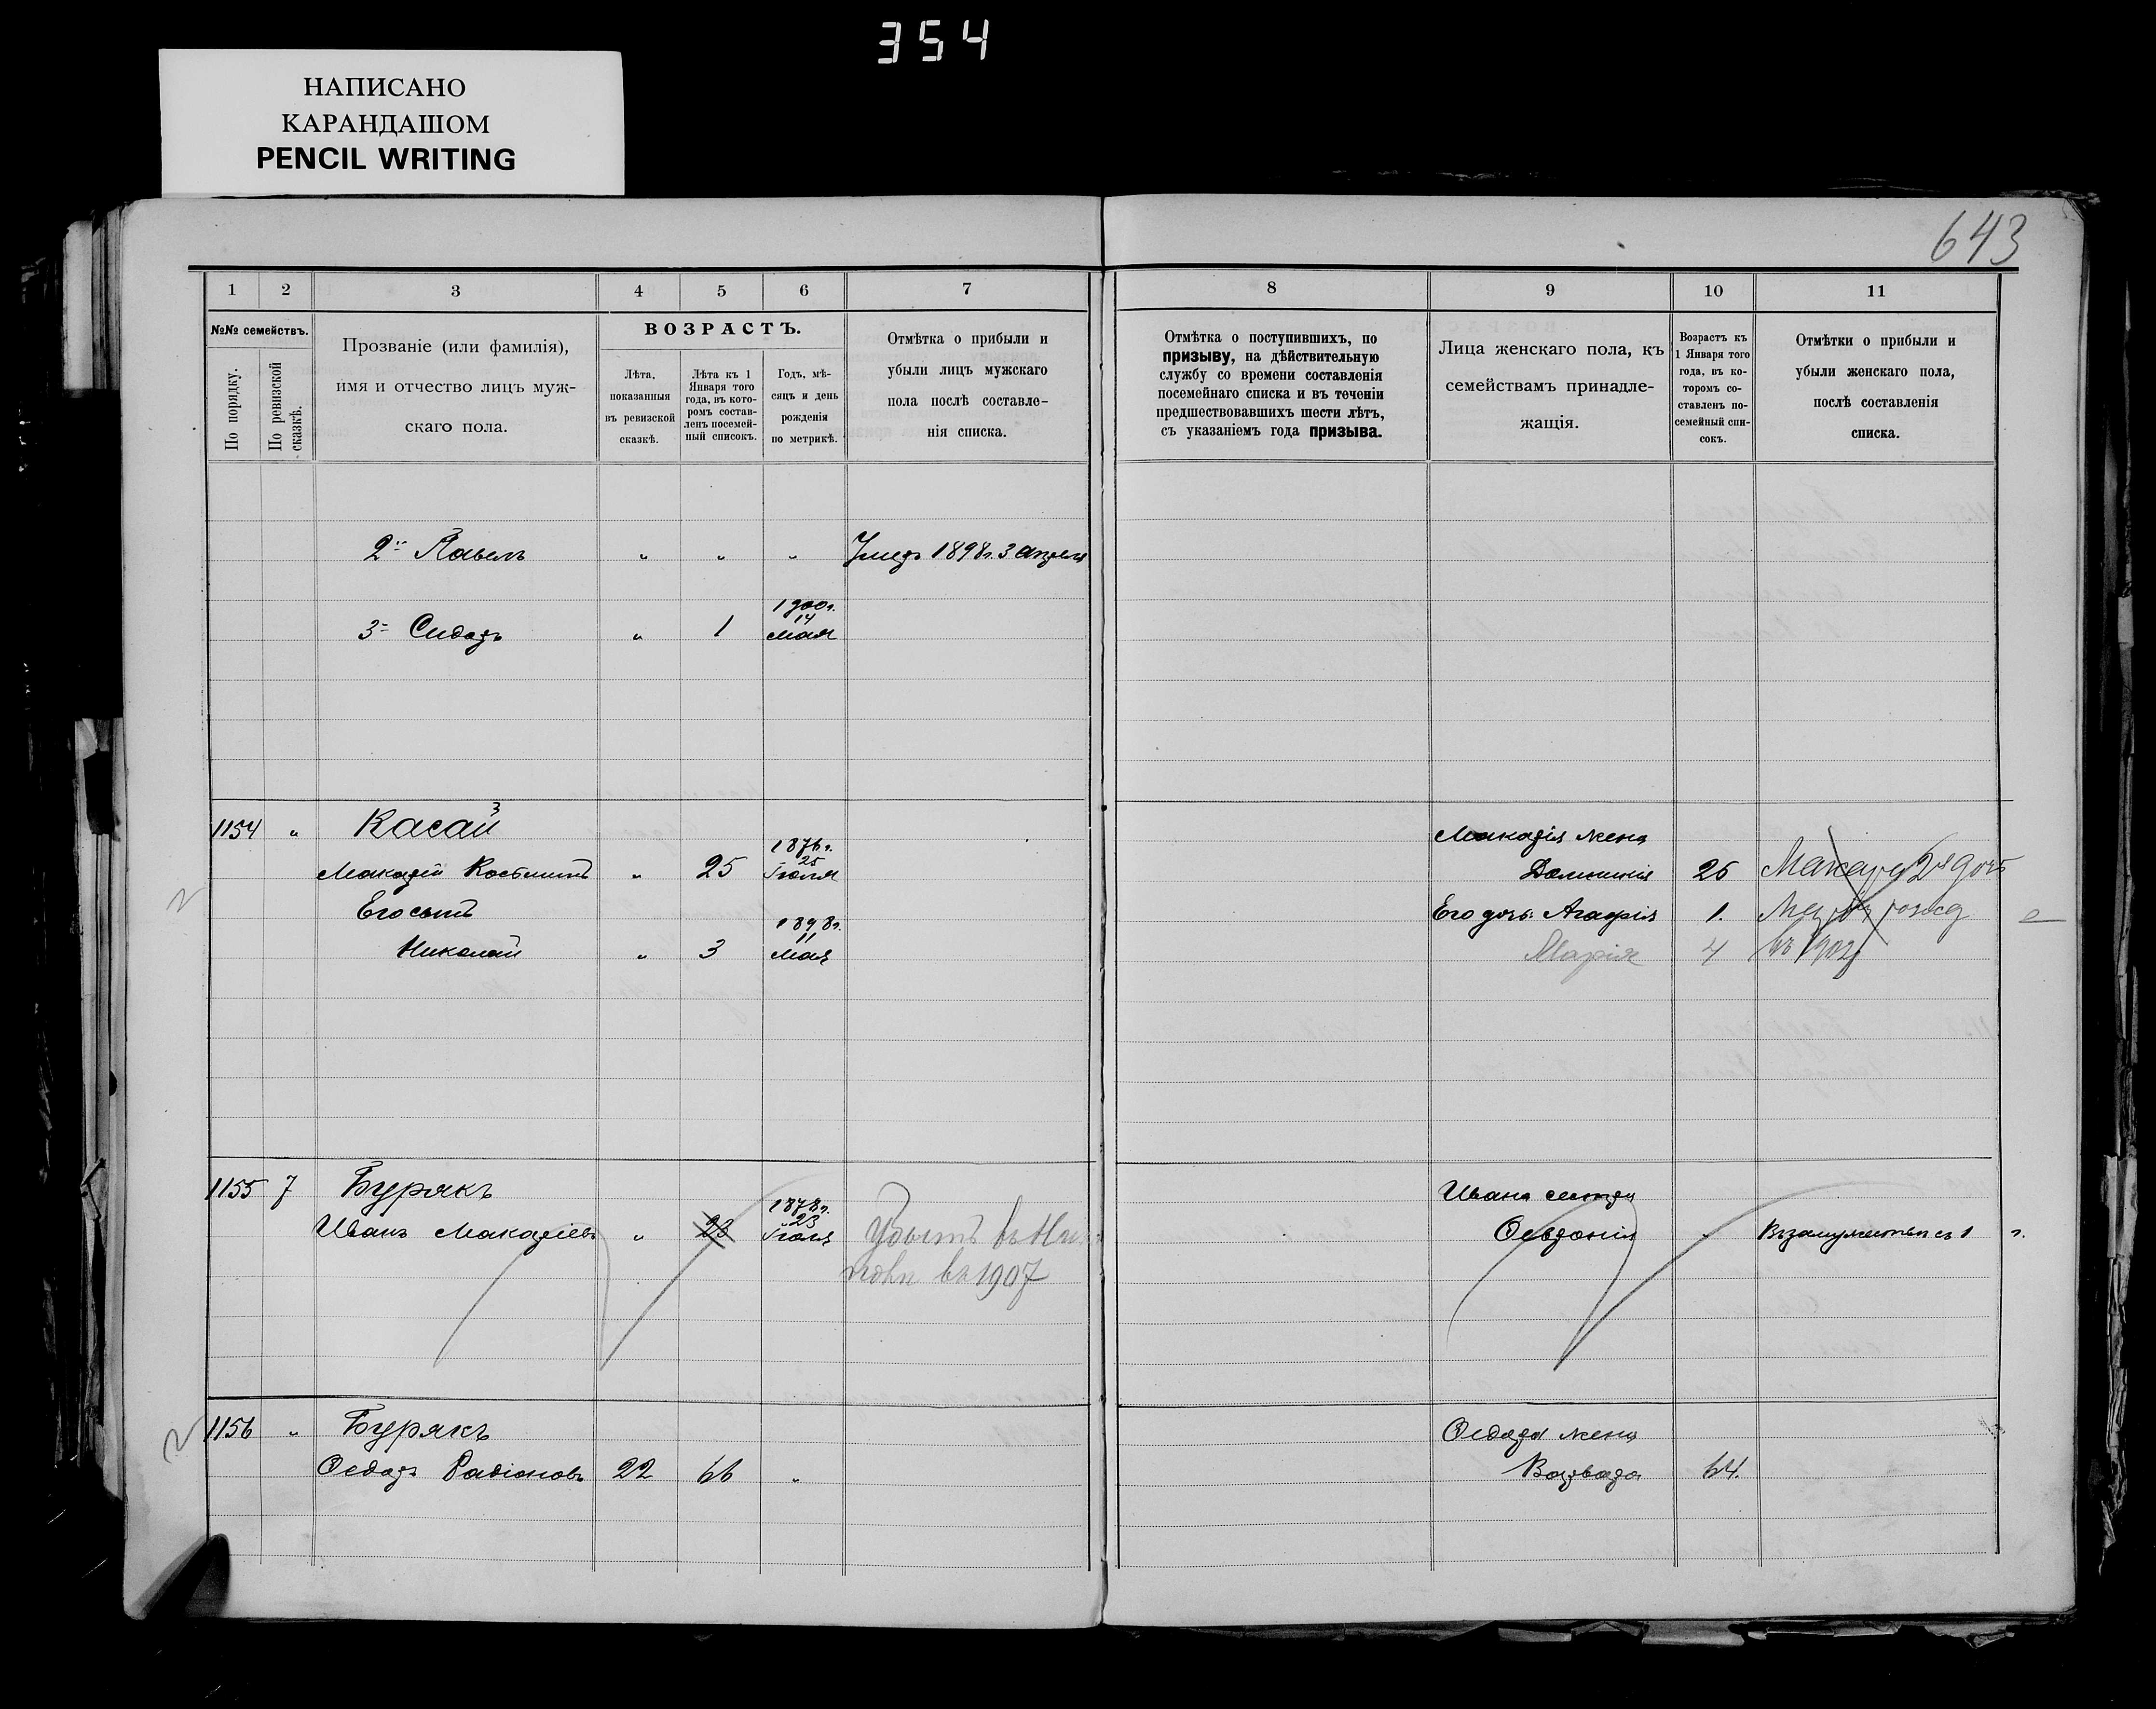 354
НАПИСАНО
КАРАНДАШОМ
PENCIL WRITING
643
1 2 3 4 5 6 7
№№ семействъ.
По порядку.
По ревизской сказкѣ.
Прозваніе (или фамилія),
имя и отчество лицъ муж-
скаго пола.
ВОЗРАСТЪ.
Лѣта,
показанныя
въ ревизской
сказкѣ.
Лѣта къ 1
Января того
года, въ кото-
ромъ состав-
ленъ посемей-
ный списокъ.
Годъ, мѣ-
сяцъ и день
рожденія
по метрикѣ.
Отмѣтка о прибыли и
убыли лицъ мужскаго
пола послѣ составле-
нія списка.
8 9 10 11
Отмѣтка о поступившихъ, по
призыву, на дѣйствительную
службу со времени составленія
посемейнаго списка и въ теченіи
предшествовавшихъ шести лѣтъ,
съ указаніемъ года призыва.
Лица женскаго пола, къ
семействамъ принадле-
жащія.
Возрастъ къ
1 Января того
года, въ ко-
торомъ со-
ставленъ по-
семейный спи-
сокъ.
Отмѣтки о прибыли и
убыли женскаго пола,
послѣ составленія
списка.
2й Павелъ " " " Умеръ 1898г. 3 апреля
1900г.
14
3й Сидоръ " 1 мая
1154 " Касай 3
Макарія жена
1876г.
25
Макарій " 25 Іюля
Домникія 26 Макара 2я дочь
Его сынъ
Его дочь Агафія 1.
1898г.
11
Николай " 3 мая
Марія 4 въ 1902
1155 7 Бурякъ
Ивана сестра
1878г.
23
Иванъ Макаріевъ " 23 Іюля
Февдонія " Въ замужествѣ съ 1 г.
въ 1907
1156 " Бурякъ
Федора жена
Федоръ Радіоновъ 22 66 "
Варвара 64.